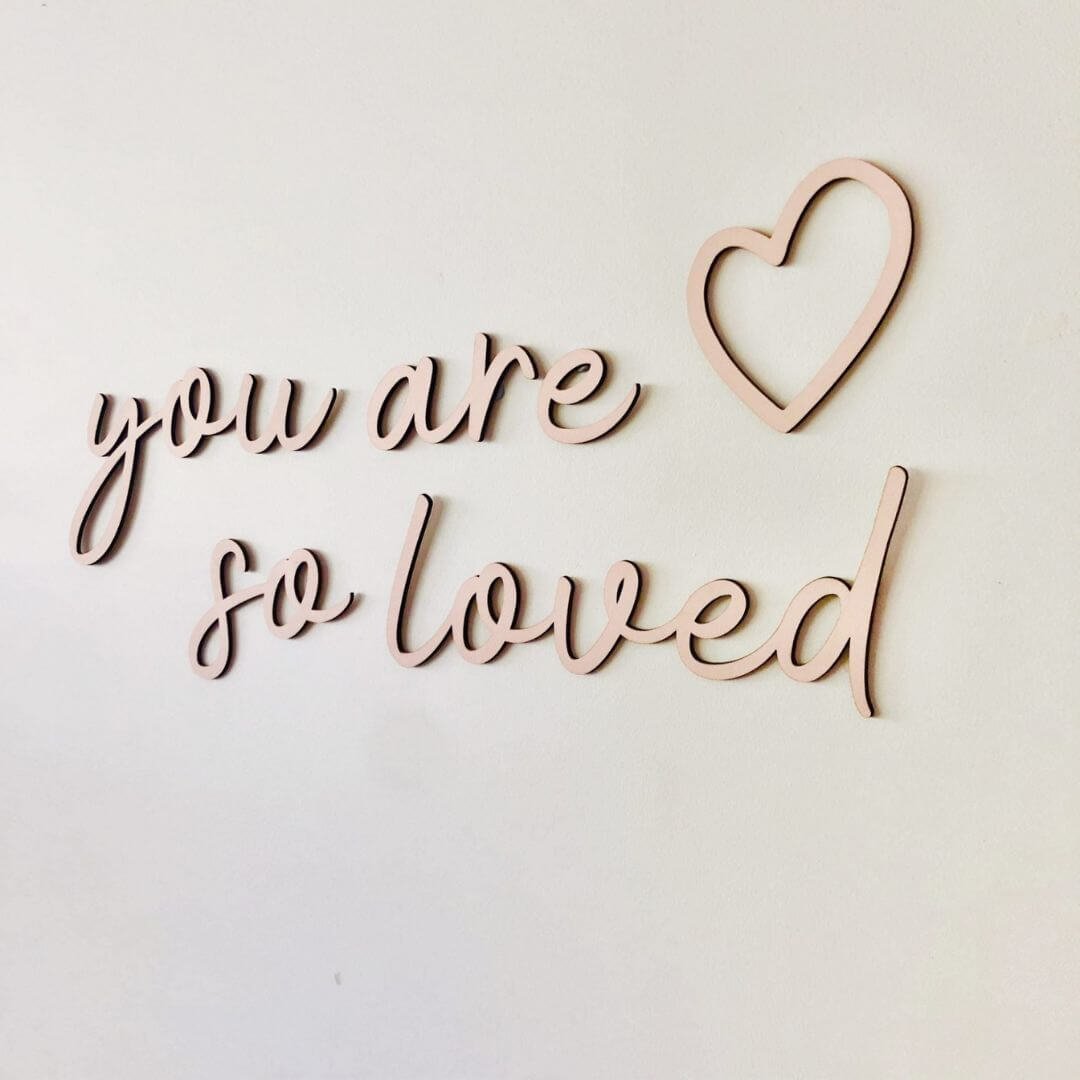 you are
so loved